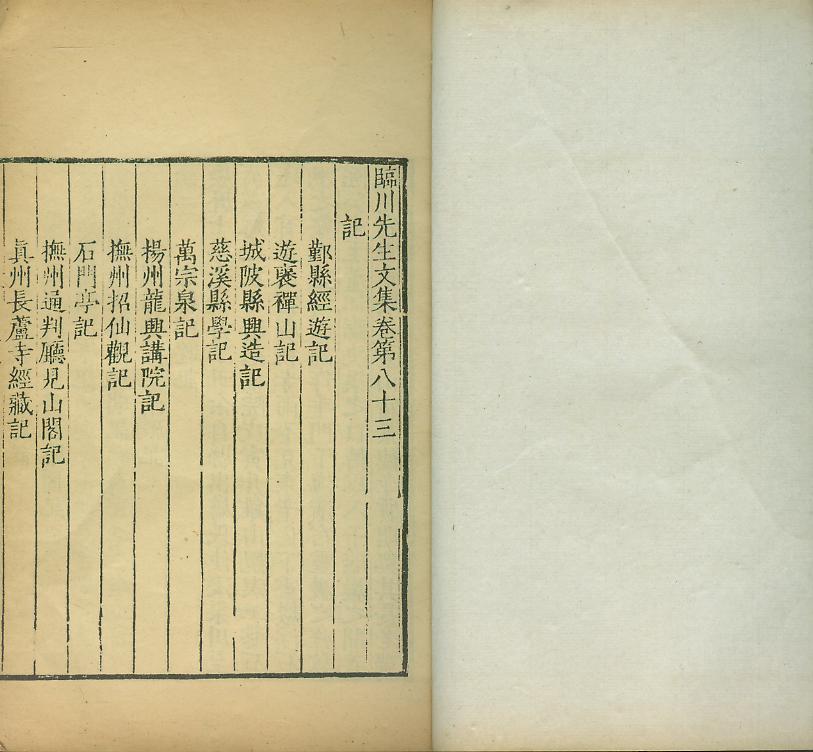 臨川先生文集卷第八十三
記
鄞縣經遊記
遊褒禪山記
城陂縣興造記
慈溪縣學記
萬宗泉記
揚州龍興講院記
撫州招仙觀記
石門亭記
撫州通判廳見山閣記
真州長蘆寺經藏記